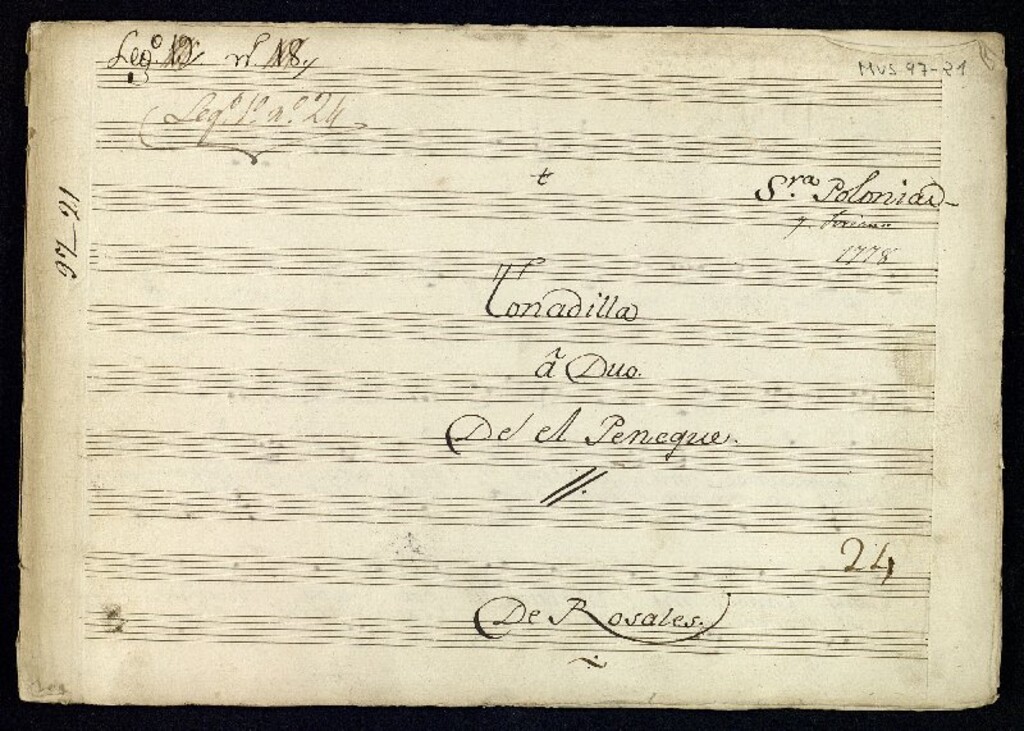 Leg.º 19 n.º 18.
MUS 97-21
Leg.º 1º n.º 24
t
S.ra Polonia
y Soriano
1778
97-21
Tonadilla
â Duo.
De el Peneque.
24
De Rosales.